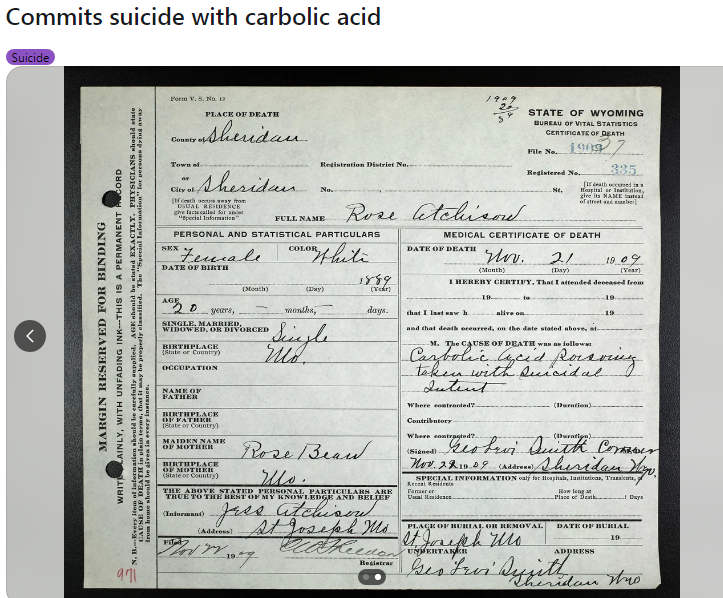 Commits suicide with carbolic acid
Suicide
Form V. S. No. 12
1909
PLACE OF DEATH
STATE OF WYOMING
BUREAU OF VITAL STATISTICS
CERTIFICATE OF DEATH
County of Sheridan
File No. 1909 37
Town of
Registration District No.
Registered No. 335
or
City of Sheridan
No.
St,
[If death occurred in a Hospital or Institution, give its NAME instead of street and number]
[If death occurs away from USUAL RESIDENCE give facts called for under "Special Information"]
FULL NAME Rose Atchison
MARGIN RESERVED FOR BINDING
WRITE PLAINLY, WITH UNFADING INK—THIS IS A PERMANENT RECORD
N. B.—Every item of information should be carefully supplied. AGE should be stated EXACTLY. PHYSICIANS should state
CAUSE OF DEATH in plain terms, that it may be properly classified. The "Special Information" for persons dying away
from home should be given in every instance.
971
PERSONAL AND STATISTICAL PARTICULARS
SEX Female COLOR White
DATE OF BIRTH
1889
(Month) (Day) (Year)
AGE
20 years, months, days.
SINGLE, MARRIED,
WIDOWED, OR DIVORCED Single
BIRTHPLACE
(State or Country) Mo.
OCCUPATION
NAME OF
FATHER
BIRTHPLACE
OF FATHER
(State or Country)
MAIDEN NAME
OF MOTHER Rose Bean
BIRTHPLACE
OF MOTHER
(State or Country) Mo.
THE ABOVE STATED PERSONAL PARTICULARS ARE
TRUE TO THE BEST OF MY KNOWLEDGE AND BELIEF
(Informant) Jess Atchison
(Address) St Joseph Mo
Filed Nov 22 1909
Registrar
MEDICAL CERTIFICATE OF DEATH
DATE OF DEATH Nov. 21 1909
(Month) (Day) (Year)
I HEREBY CERTIFY, That I attended deceased from
19 to 19
that I last saw h alive on 19
and that death occurred, on the date stated above, at
M. The CAUSE OF DEATH was as follows:
Carbolic acid poisoning
taken with suicidal
intent
Where contracted? (Duration)
Contributory
Where contracted? (Duration)
(Signed) Geo Levi Smith Coroner
Nov. 22 1909 (Address) Sheridan Wyo.
SPECIAL INFORMATION only for Hospitals, Institutions, Transients, or
Recent Residents
Former or
Usual Residence
How long at
Place of Death Days
PLACE OF BURIAL OR REMOVAL DATE OF BURIAL
St Joseph Mo 19
UNDERTAKER ADDRESS
Geo Levi Smith
Sheridan Wyo